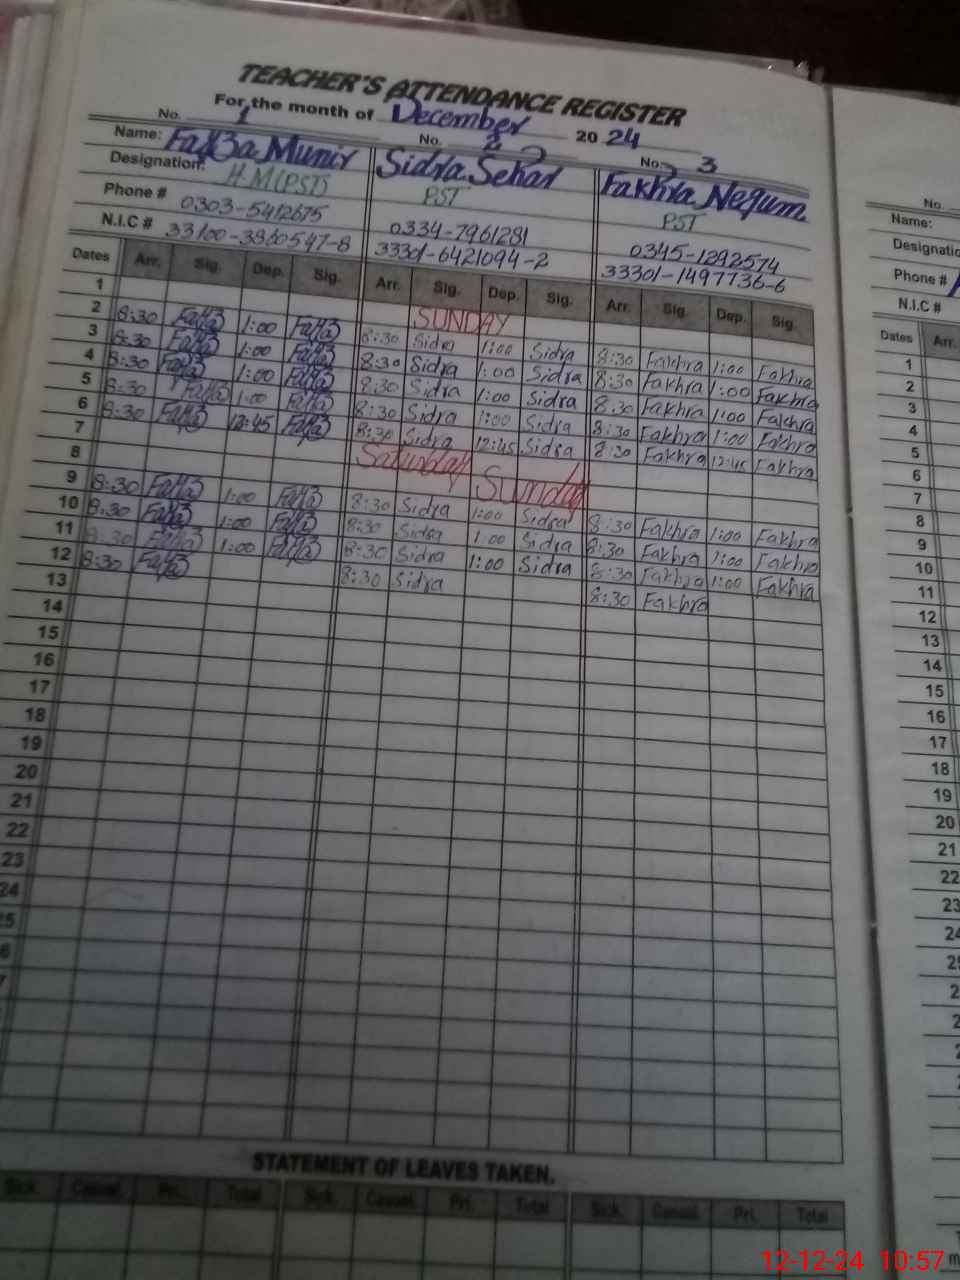 TEACHER'S ATTENDANCE REGISTER
For the month of December 2024
No. 1 No. 2 No. 3
Name: Munir Sidra Sehar Fakhra Negum
Designation: H-M(PST) PST PST
Phone # 0303-5412675 0334-7961281 0345-1292574
N.I.C # 33100-3860547-8 33301-6421094-2 33301-1497736-6
Dates Arr. Sig. Dep. Sig. Arr. Sig. Dep. Sig. Arr. Sig. Dep. Sig.
1 SUNDAY
2 8:30 1:00 8:30 Sidra 1:00 Sidra 8:30 Fakhra 1:00 Fakhra
3 8:30 1:00 8:30 Sidra 1:00 Sidra 8:30 Fakhra 1:00 Fakhra
4 8:30 1:00 8:30 Sidra 1:00 Sidra 8:30 Fakhra 1:00 Fakhra
5 8:30 1:00 8:30 Sidra 1:00 Sidra 8:30 Fakhra 1:00 Fakhra
6 8:30 12:45 8:30 Sidra 12:45 Sidra 8:30 Fakhra 12:45 Fakhra
7 Saturday
8 Sunday
9 8:30 1:00 8:30 Sidra 1:00 Sidra 8:30 Fakhra 1:00 Fakhra
10 8:30 1:00 8:30 Sidra 1:00 Sidra 8:30 Fakhra 1:00 Fakhra
11 8:30 1:00 8:30 Sidra 1:00 Sidra 8:30 Fakhra 1:00 Fakhra
12 8:30 8:30 Sidra 8:30 Fakhra
13
14
15
16
17
18
19
20
21
22
23
24
STATEMENT OF LEAVES TAKEN.
Sick. Casual. Pri. Total Sick. Casual. Pri. Total Sick. Casual. Pri. Total
No.
Name:
Designatio
Phone #
N.I.C #
Dates Arr.
1
2
3
4
5
6
7
8
9
10
11
12
13
14
15
16
17
18
19
20
21
22
23
24
12-12-24 10:57